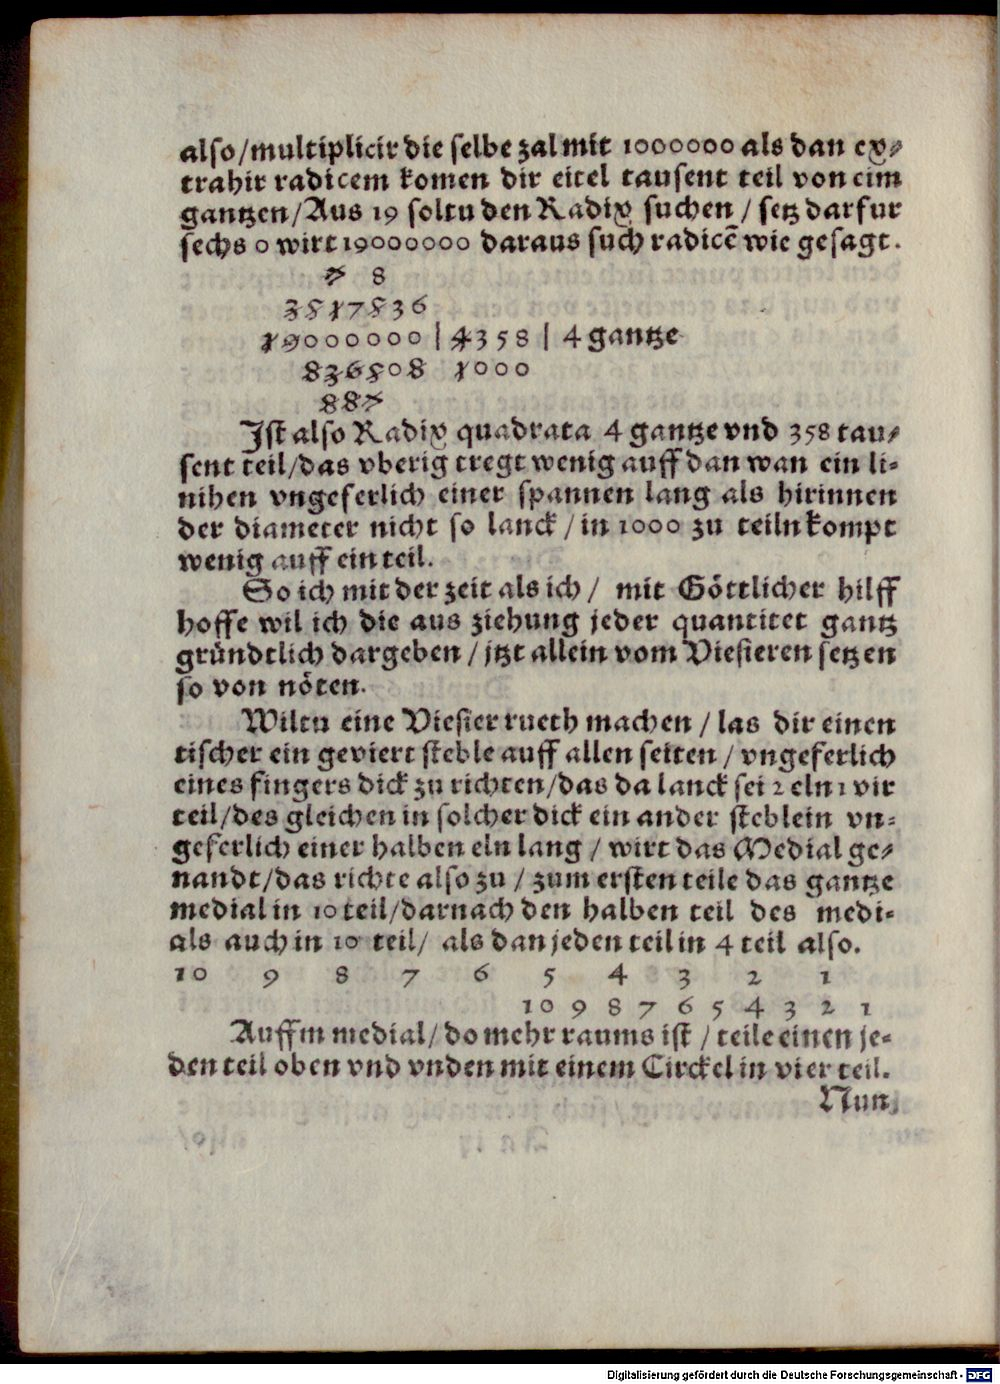 also/multiplicir die selbe zal mit 1000000 als dan ex⸗
trahir radicem komen dir eitel tausent teil von eim
gantzen/Aus 19 soltu den Radix suchen / setz darfur
sechs 0 wirt 19000000 daraus such radicē wie gesagt.
7 8
3817836
19000000 | 4358 | 4 gantze
836808 1000
887
Ist also Radix quadrata 4 gantze vnd 358 tau⸗
sent teil/das vberig tregt wenig auff dan wan ein li⸗
nihen vngeferlich einer spannen lang als hirinnen
der diameter nicht so lanck / in 1000 zu teiln kompt
wenig auff ein teil.
So ich mit der zeit als ich / mit Göttlicher hilff
hoffe wil ich die aus ziehung jeder quantitet gantz
gründtlich dargeben / jtzt allein vom Viesieren setzen
so von nöten.
Wiltu eine Viesier rueth machen / las dir einen
tischer ein geviert steble auff allen seiten / vngeferlich
eines fingers dick zu richten/das da lanck sei 2 eln 1 vir
teil/des gleichen in solcher dick ein ander steblein vn⸗
geferlich einer halben eln lang / wirt das Medial ge⸗
nandt/das richte also zu / zum ersten teile das gantze
medial in 10 teil/darnach den halben teil des medi⸗
als auch in 10 teil/ als dan jeden teil in 4 teil also.
10 9 8 7 6 5 4 3 2 1
10 9 8 7 6 5 4 3 2 1
Auffm medial/ do mehr raums ist / teile einen je⸗
den teil oben vnd vnden mit einem Circkel in vier teil.
Nun
Digitalisierung gefördert durch die Deutsche Forschungsgemeinschaft - DFG